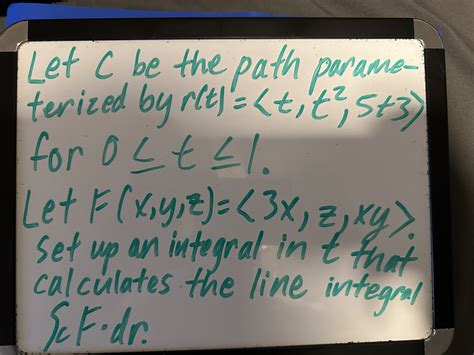 Let C be the path parame-
terized by r(t)=<t, t², 5t3>
for 0 ≤ t ≤ 1.
Let F(x,y,z)=<3x, z, xy>.
set up an integral in t that
calculates the line integral
∫c F·dr.